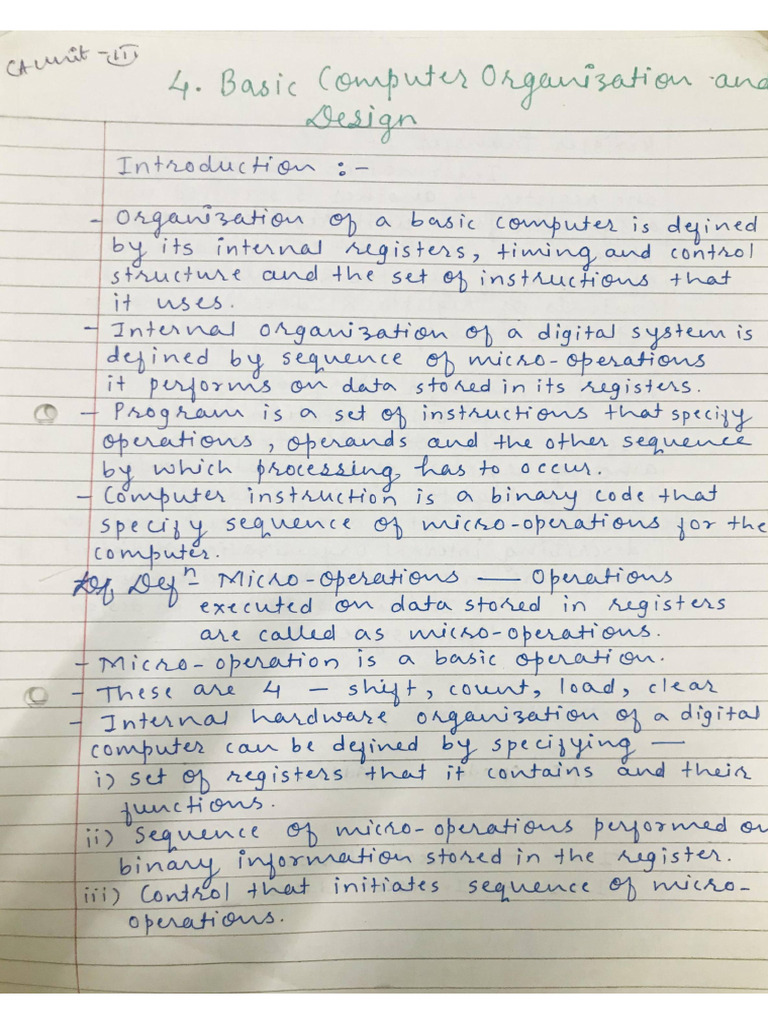 CA Unit - II
4. Basic Computer Organization and
Design
Introduction :-
- Organization of a basic computer is defined
by its internal registers, timing and control
structure and the set of instructions that
it uses.
- Internal organization of a digital system is
defined by sequence of micro-operations
it performs on data stored in its registers.
- Program is a set of instructions that specify
operations, operands and the other sequence
by which processing has to occur.
- Computer instruction is a binary code that
specify sequence of micro-operations for the
computer.
Defn - Micro-operations — Operations
executed on data stored in registers
are called as micro-operations.
- Micro-operation is a basic operation.
- These are 4 — shift, count, load, clear
- Internal hardware organization of a digital
computer can be defined by specifying —
i) set of registers that it contains and their
functions.
ii) Sequence of micro-operations performed on
binary information stored in the register.
iii) Control that initiates sequence of micro-
operations.